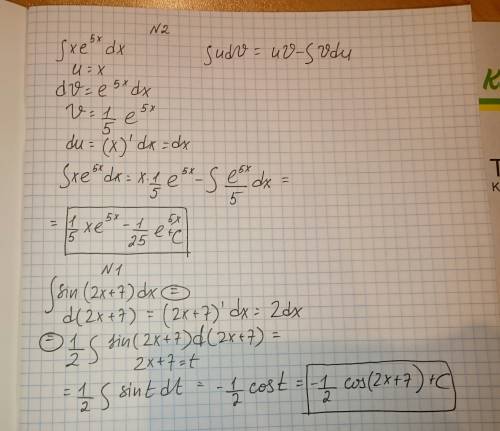 N2
∫xe^{5x}dx    ∫udv = uv-∫vdu
u=x
dv=e^{5x}dx
v=1/5 e^{5x}
du=(x)'dx=dx
∫xe^{5x}dx=x·1/5 e^{5x}-∫e^{5x}/5 dx=
=1/5 xe^{5x}-1/25 e^{5x}+C
N1
∫sin(2x+7)dx =
d(2x+7)=(2x+7)'dx=2dx
= 1/2 ∫sin(2x+7)d(2x+7)=
2x+7=t
=1/2 ∫sint dt = -1/2 cost = -1/2 cos(2x+7)+C
К
Т
К